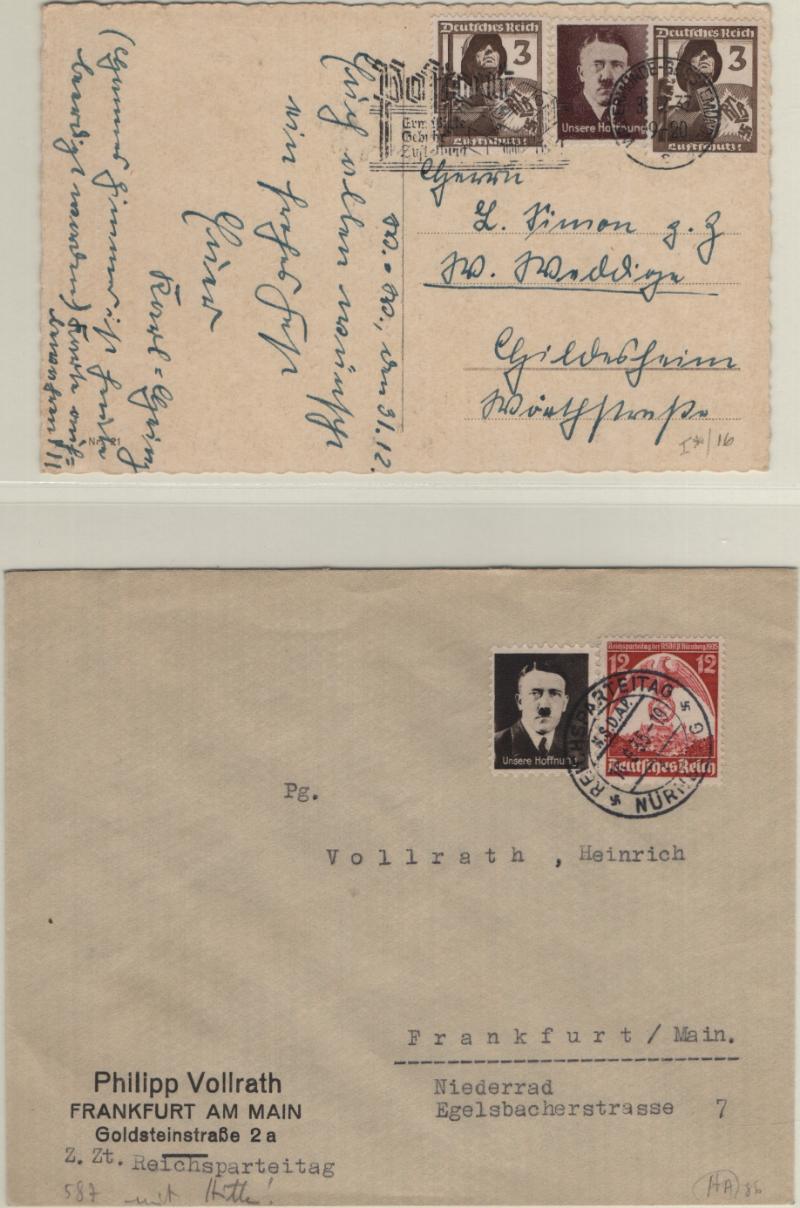 Deutsches Reich
3
Luftschutz!
Unsere Hoffnung
Deutsches Reich
3
Luftschutz!
9-20
Herrn
L. Simon z. Z
W. Weddige
Hildesheim
Wörthstraße
I*/16
den 31.12.
Euch allen wünscht
ein frohes Fest
Euer
Karl-Heinz
Unsere Hoffnung
Reichsparteitag der NSDAP Nürnberg 1935
12 12
Deutsches Reich
REICHSPARTEITAG
N.S.D.A.P.
Pg.
Vollrath, Heinrich
Frankfurt/Main.
Niederrad
Egelsbacherstrasse 7
Philipp Vollrath
FRANKFURT AM MAIN
Goldsteinstraße 2a
Z. Zt. Reichsparteitag
587 mit
HA 86